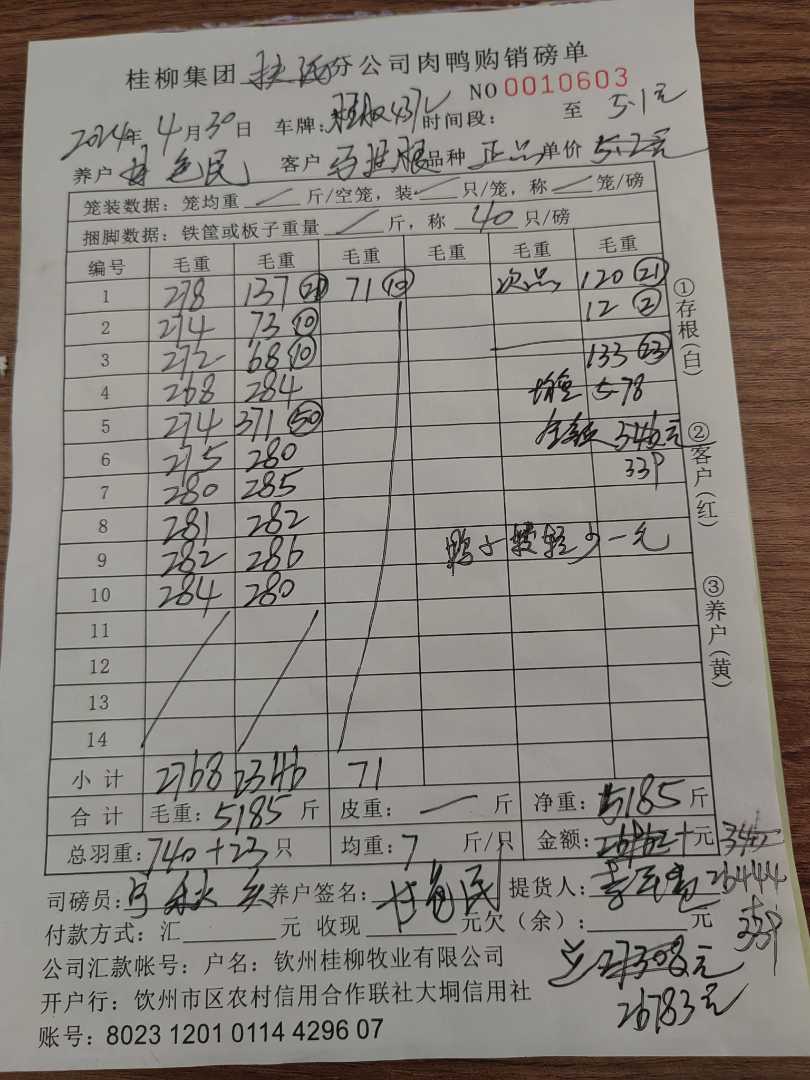 桂柳集团 分公司肉鸭购销磅单
NO 0010603
2024年4月30日 车牌: 时间段: 至 5.1元
养户 民 客户 品种 正品 单价 5.2元
笼装数据:笼均重 斤/空笼,装 只/笼,称 笼/磅
捆脚数据:铁筐或板子重量 斤,称 40 只/磅
编号 毛重 毛重 毛重 毛重 毛重 毛重
1 278 137 ㉑ 71 ⑩ 次品 120 ㉑
2 274 73 ⑩ 12 ②
3 272 68 ⑩ 133 ㉓
4 268 284 均重 5.78
5 274 371 ㊿ 金额 346元
6 275 280 339
7 280 285
8 281 282
9 282 286 鸭子较轻少一元
10 284 280
11
12
13
14
小计 2768 2346 71
合计 毛重:5185斤 皮重: 斤 净重:5185斤
总羽重:740+23只 均重:7 斤/只 金额: 元
司磅员: 养户签名: 民 提货人: 26444
付款方式:汇 元 收现 元欠(余): 元 +339
公司汇款帐号:户名:钦州桂柳牧业有限公司 27308元
开户行:饮州市区农村信用合作联社大垌信用社 26783元
账号:8023 1201 0114 4296 07
①存根(白)
②客户(红)
③养户(黄)